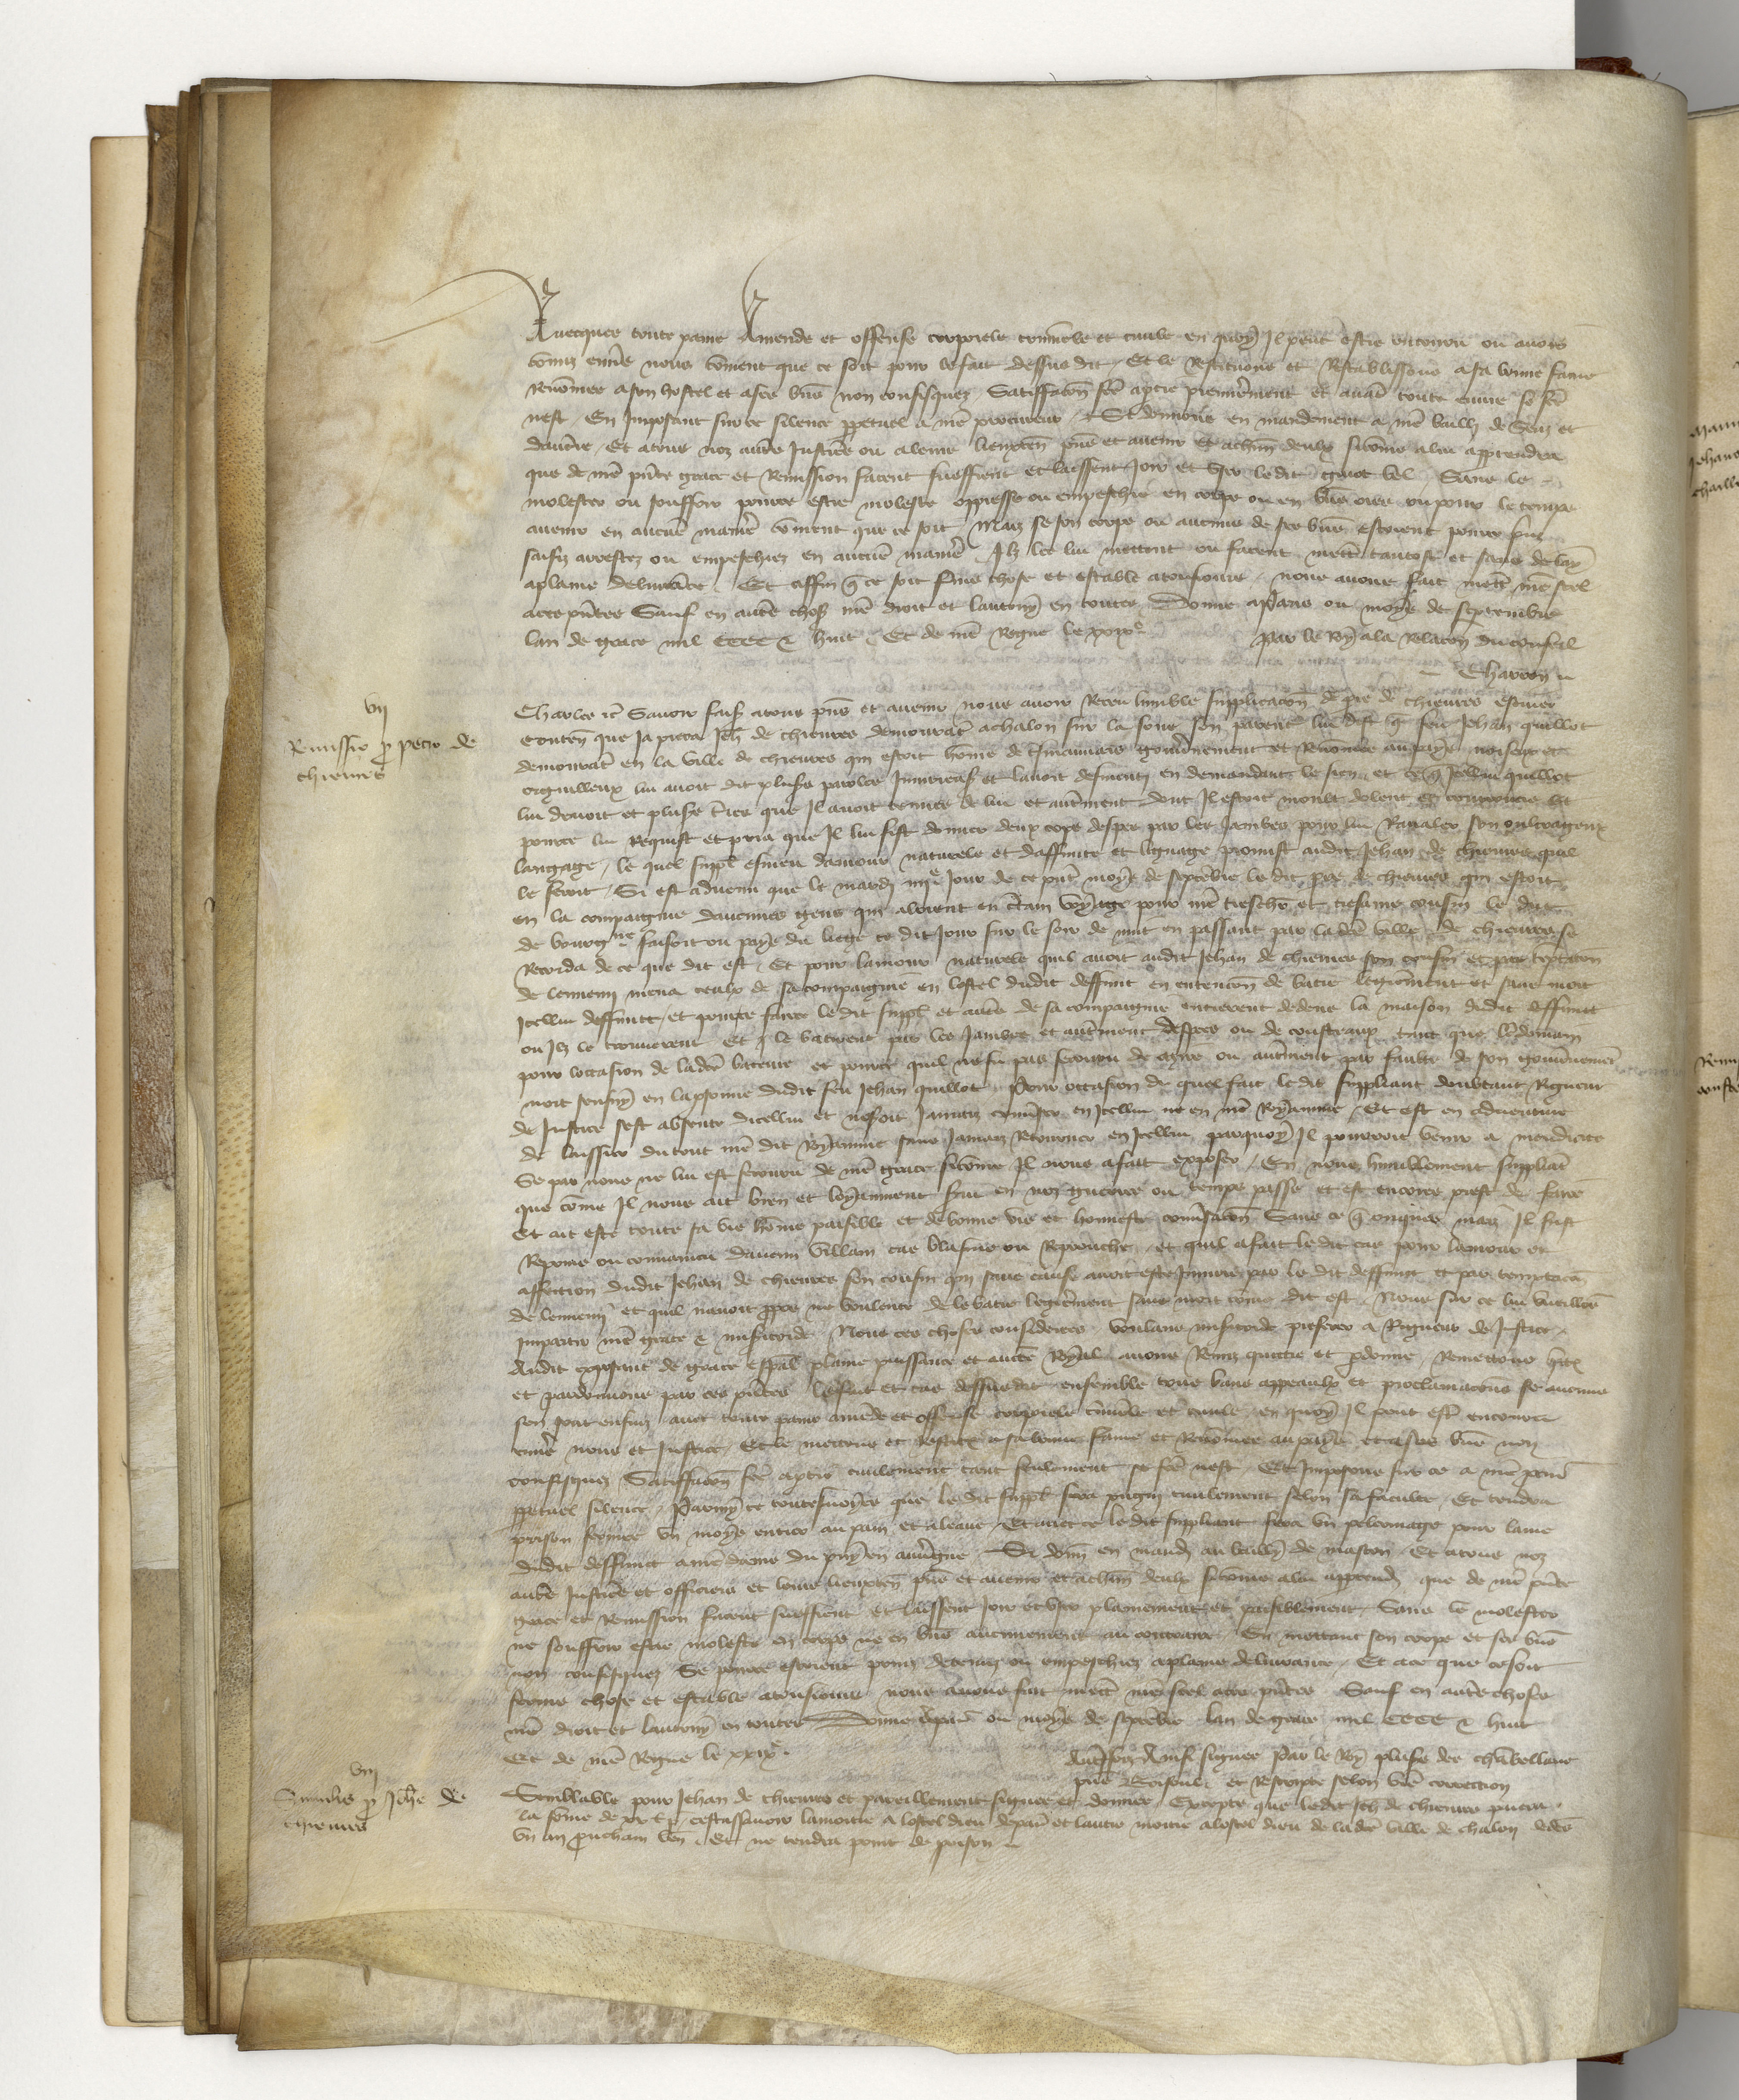 Avecques toute paine Amende et offense corporele criminele et civile en quoy Il peut estre encouru ou avoir
commis envers nous comment que ce soit pour le fait dessus dit Et le Restituons et Restablissons a sa bonne fame
Renommee a son hostel et a ses biens non confisquez Satisfacion fce a partie premierement et avant toute euvre se fce
nest En Imposant sur ce silence perpetuel a nre procureur Si donnons en mandement a nre bailli de Senz et
Et a tous noz autres Justiciers ou a leurs lieuxten pns et avenir et a chun deulx sicome a lui appartendra
que de nre pnte grace et Remission facent sueffrent et laissent Joir et user le dit bel Sans le
molester ou souffrir pource estre moleste oppresse ou empeschie en corps ou en biens ores ou pour le temps
avenir en aucune maniere comment que ce soit Mais se son corps ou aucuns de ses biens estoient pource
saisiz arrestez ou empeschiez en aucune maniere Ilz les lui mettent ou facent mettre tantost et sans delay
a plaine delivrance Et affin que ce soit ferme chose et estable a tousjours nous avons fait mettre nre scel
a ces pntes Sauf en autres choses nre droit et lautruy en toutes Donne a Paris ou moys de septembre
lan de grace mil CCCC & huit Et de nre Regne le xxixe Par le Roy a la Relacon du conseil
Charron
vii
Remissio pro petro de
chieures
Charles etc Savoir faisons a tous pns et avenir nous avoir Receu humble supplicacion de pre de chieures escuier
conten que Ja pieca Jeh de chieures demourant a chalon sur la sone son parent lui dist que feu Jehan quillot
demourant en la ville de chieures qui estoit homme de gouvernement et Renommee au pays noiseux et
orguilleux lui avoit dit pluss paroles Injurieuses et lavoit desmenti en demandant le sien et ce que Icellui quillot
lui devoit et pluss terres que Il avoit tenues de lui et autrement dont Il estoit moult dolent et courroucie et
pource lui Requist et pria que Il lui fist donner deux cops despee par les Jambes pour lui Ravaler son oultrageux
langage le quel suppl esmeu damour naturele et daffinite et lignage promist audit Jehan de chieures quil
le feroit Si est advenu que le mardi iiije Jour de ce pnt moys de septembre le dit pre de chieures qui estoit
en la compaignie daucunes gens qui aloient en certain voyage pour nre treschier et tresame cousin le duc
de bourgne faisoit ou pays du liege ce dit Jour sur le soir de nuit en passant par la dce ville de chieures se
Recorda de ce que dit est Et pour lamour naturele quil avoit audit Jehan de chieures son cousin et par temptacion
de lennemi mena ceulx de sa compaignie en lostel dudit deffunt en entencion de batre legierement et sans mort
Icellui deffunct et pource faire le dit suppl et autres de sa compaignie entrerent dedens la maison dudit deffunct
ou Ilz le trouverent Et le batirent par les Jambes et autrement despees ou de cousteaux tant que lendemain
pour loccasion de ladce bateure et pource quil ne fu pas secouru de mires ou autrement par faulte de son gouvernement
mort sensuy en la psonne dudit feu Jehan quillot Pour occasion de quel fait le dit suppliant doubtant Rigueur
de Justice sest absente dicellui et noseroit Jamais converser en Icellui ne en nre Royaume Et est en adventure
de laissier du tout nre dit Royaume sans Jamais Retourner en Icellui parquoy Il pourroit venir a mendicite
Se par nous ne lui est secouru de nre grace sicome Il nous a fait exposer En nous humblement suppliant
que come Il nous ait bien et loyaument servi en noz guerres ou temps passe et est encores prest de faire
Et ait este toute sa vie home paisible et de bonne vie et honneste conversacion Sans ce que onques mais Il fust
Reprins ou convaincu daucun villain cas blasme ou Reprouche et quil a fait le dit cas pour lamour et
affeccion dudit Jehan de chieures son cousin qui sans cause avoit este Injurie par le dit deffunt et par temptacion
de lennemi et quil navoit propos ne voulente de le batre legierement sans mort come dit est Nous sur ce lui vueillons
Impartir nre grace & misericorde Nous ces choses considerees voulans misericorde preferer a Rigueur de Justice
Audit exposant de grace especial plaine puissance et aucte Royal avons Remis quictie et pdonne Remettons quictons
et pardonnons par ces pntes le fait et cas dessusdit ensemble tous bans appeaulx et proclamacions se aucuns
sen sont ensuiz avec toute paine amende et offense corporele criminele et civile en quoy Il peut estre encouru
envers nous et Justice Et le mettons et Restituons a sa bonne fame et Renommee au pays et a ses biens non
confisquez Satisfacion fce a partie civilement tant seulement se fce nest Et Imposons sur ce a nre procur
perpetuel silence Parmy ce toutesvoyes que le dit suppl sera pugny civilement selon sa faculte Et tendra
prison fermee un moys entier au pain et a leaue Et avec ce le dit suppliant fera un pelerinage pour lame
dudit deffunct a nre dame du puy en auvergne Si donn en mandem au bailly de mascon Et a tous noz
autres Justiciers et officiers et leurs lieuxten pns et avenir et a chun deulx sicome a lui appartendra que de nre pnte
grace et Remission facent sueffrent et laissent Joir et user plainement et paisiblement Sans le molester
ne souffrir estre moleste en corps ne en biens aucunement au contraire En mettant son corps et ses biens
non confisquez Se pource estoient prins detenuz ou empeschiez a plaine delivrance Et a ce que ce soit
ferme chose et estable a tousjours nous avons fait mettre nre scel a ces pntes Sauf en autres choses
nre droit et lautruy en toutes Donne a Paris ou moys de septembre lan de grace mil CCCC & huit
Et de nre Regne le xxixe Ainsi signee Par le Roy pluss des chambellans
pns et Rescripte selon vre correction
viij
Similis pro Johe de
chieures
Semblable pour Jehan de chieures et pareillement signee et donnee Excepte que ledit Jeh de chieures paiera
la some de cestassavoir la moitie a lostel dieu de paris et lautre moitie a lostel dieu de ladce ville de chalon dedens
un an prouchain ven Et ne tendra point de prison